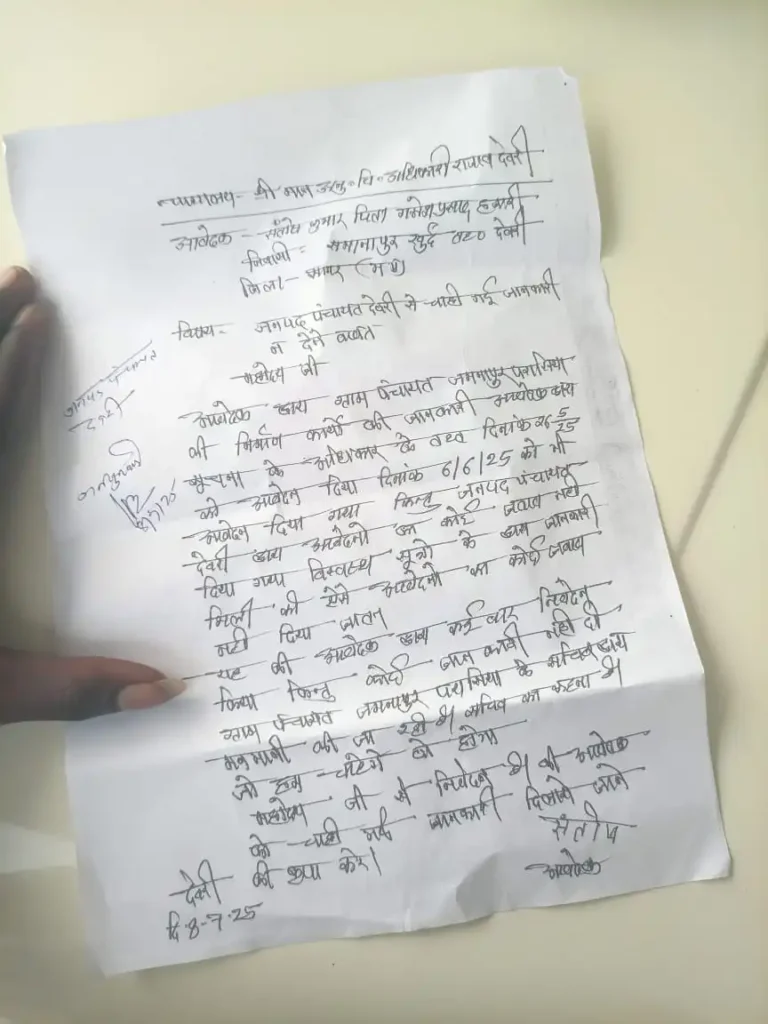 न्यायालय - श्री मान अनु. वि. अधिकारी राजस्व देवरी
आवेदक - संतोष कुमार पिता गनेश प्रसाद
निवासी - समनापुर खुर्द तह० देवरी
जिला - सागर (म प्र)
विषय - जनपद पंचायत देवरी से चाही गई जानकारी
न देने बावत
महोदय जी
आवेदक द्वारा ग्राम पंचायत जमनापुर पलासिया
की निर्माण कार्यो की जानकारी आवेदक द्वारा
सूचना के अधिकार के तहत दिनांक 26/5/25
को आवेदन दिया दिनांक 6/6/25 को भी
आवेदन दिया गया किन्तु जनपद पंचायत
देवरी द्वारा आवेदनो का कोई जवाब नही
दिया गया विस्वस्थ सूत्रो के द्वारा जानकारी
मिली की ऐसे आवेदनो का कोई जवाब
नही दिया जाता
यह की आवेदक द्वारा कई बार निवेदन
किया किन्तु कोई जानकारी नही दी
ग्राम पंचायत जमनापुर पलासिया के सचिव द्वारा
मनमानी की जा रही है सचिव का कहना है
जो हम चाहेगे वो होगा
महोदय जी से निवेदन है की आवेदक
को चाही गई जानकारी दिलाये जाने
की कृपा करे।
संतोष
आवेदक
देवरी
दि. 8-7-25
जनपद पंचायत
देवरी